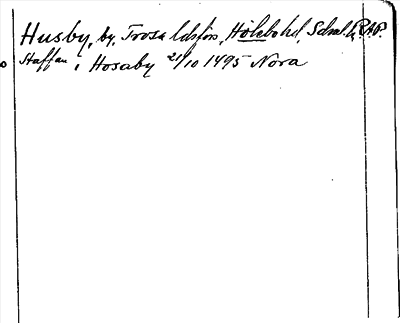 Husby, by, Trosa ldsförs, Hölebo hd, Södml. RAP.
Staffan i Hosaby 21/10 1495 Nora